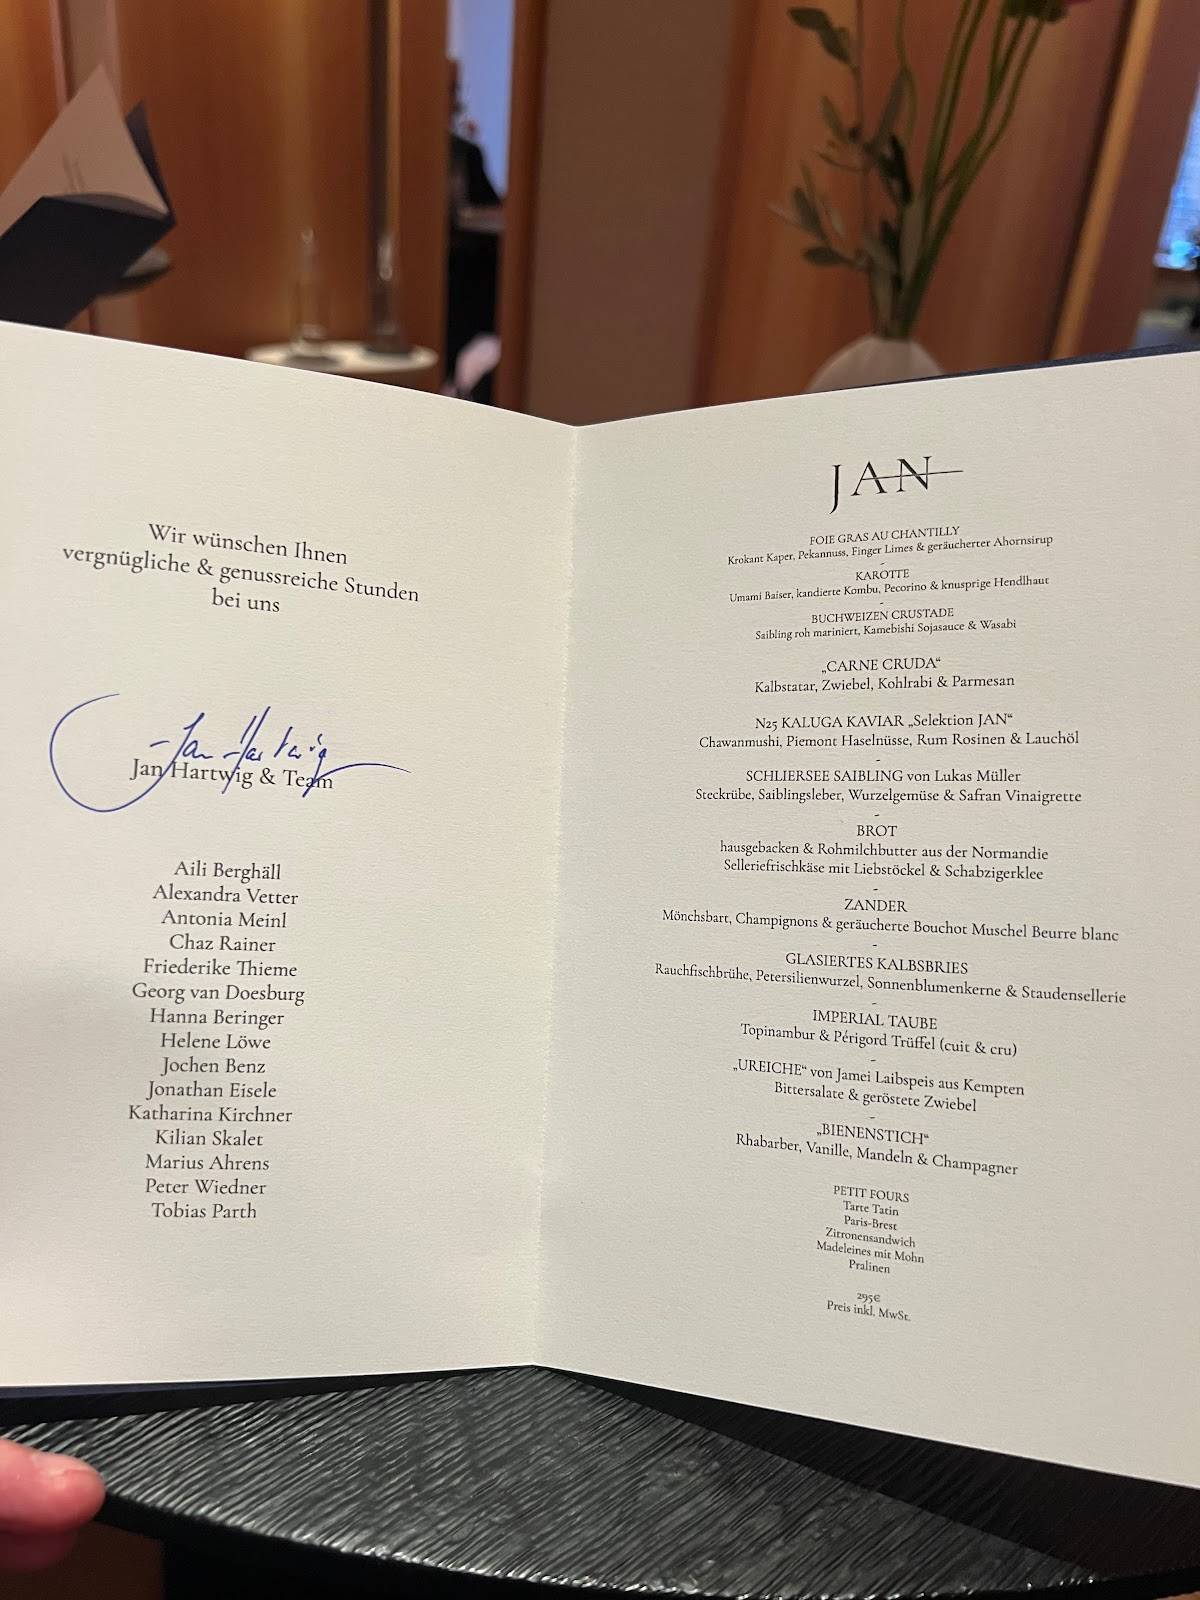 Wir wünschen Ihnen
vergnügliche & genussreiche Stunden
bei uns
Jan Hartwig
Jan Hartwig & Team
Aili Berghäll
Alexandra Vetter
Antonia Meinl
Chaz Rainer
Friederike Thieme
Georg van Doesburg
Hanna Beringer
Helene Löwe
Jochen Benz
Jonathan Eisele
Katharina Kirchner
Kilian Skalet
Marius Ahrens
Peter Wiedner
Tobias Parth
JAN
FOIE GRAS AU CHANTILLY
Krokant Kaper, Pekannuss, Finger Limes & geräucherter Ahornsirup
-
KAROTTE
Umami Baiser, kandierte Kombu, Pecorino & knusprige Hendlhaut
-
BUCHWEIZEN CRUSTADE
Saibling roh mariniert, Kamebishi Sojasauce & Wasabi
„CARNE CRUDA“
Kalbstatar, Zwiebel, Kohlrabi & Parmesan
N25 KALUGA KAVIAR „Selektion JAN“
Chawanmushi, Piemont Haselnüsse, Rum Rosinen & Lauchöl
-
SCHLIERSEE SAIBLING von Lukas Müller
Steckrübe, Saiblingsleber, Wurzelgemüse & Safran Vinaigrette
-
BROT
hausgebacken & Rohmilchbutter aus der Normandie
Selleriefrischkäse mit Liebstöckel & Schabzigerklee
-
ZANDER
Mönchsbart, Champignons & geräucherte Bouchot Muschel Beurre blanc
-
GLASIERTES KALBSBRIES
Rauchfischbrühe, Petersilienwurzel, Sonnenblumenkerne & Staudensellerie
-
IMPERIAL TAUBE
Topinambur & Périgord Trüffel (cuit & cru)
-
„UREICHE“ von Jamei Laibspeis aus Kempten
Bittersalate & geröstete Zwiebel
-
„BIENENSTICH“
Rhabarber, Vanille, Mandeln & Champagner
PETIT FOURS
Tarte Tatin
Paris-Brest
Zitronensandwich
Madeleines mit Mohn
Pralinen
295€
Preis inkl. MwSt.